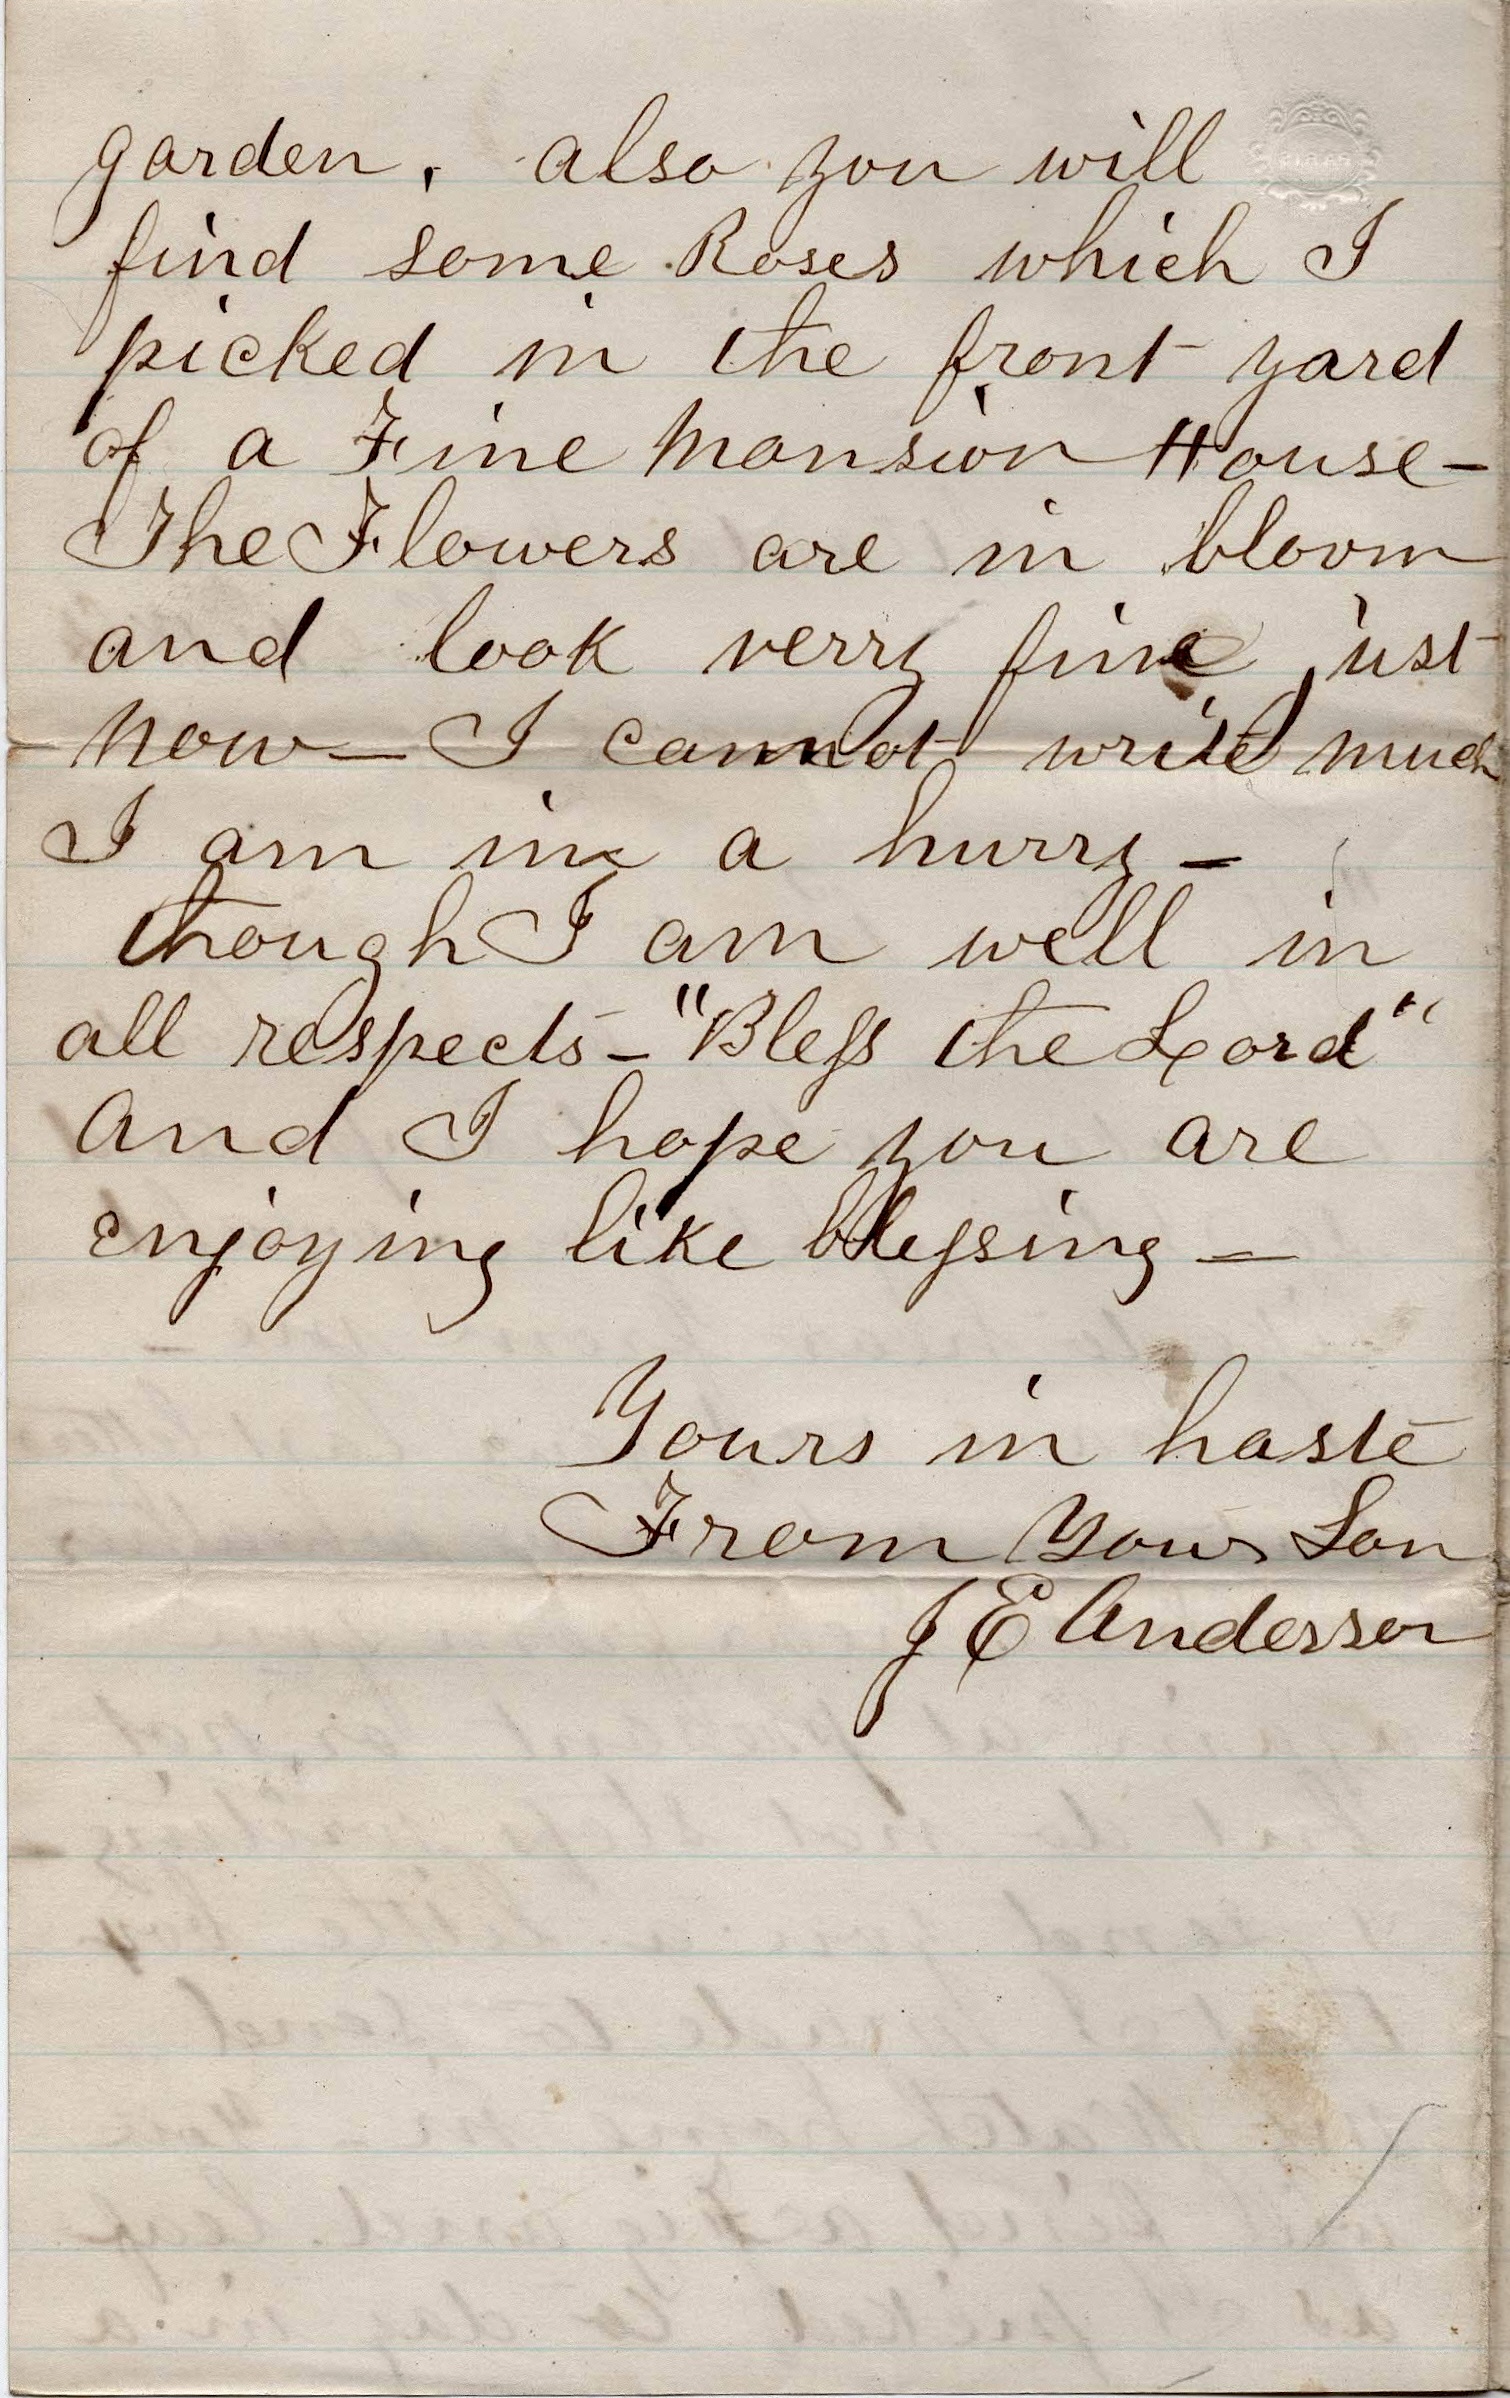 garden. also you will
find some Roses which I
picked in the front yard
of a Fine Mansion House-
The Flowers are in bloom
and look verry fine just
Now - I cannot write much
I am in a hurry -
though I am well in
all respects - "Bless the Lord"
And I hope you are
enjoying like blessing -
Yours in haste
From Your Son
J E Anderson